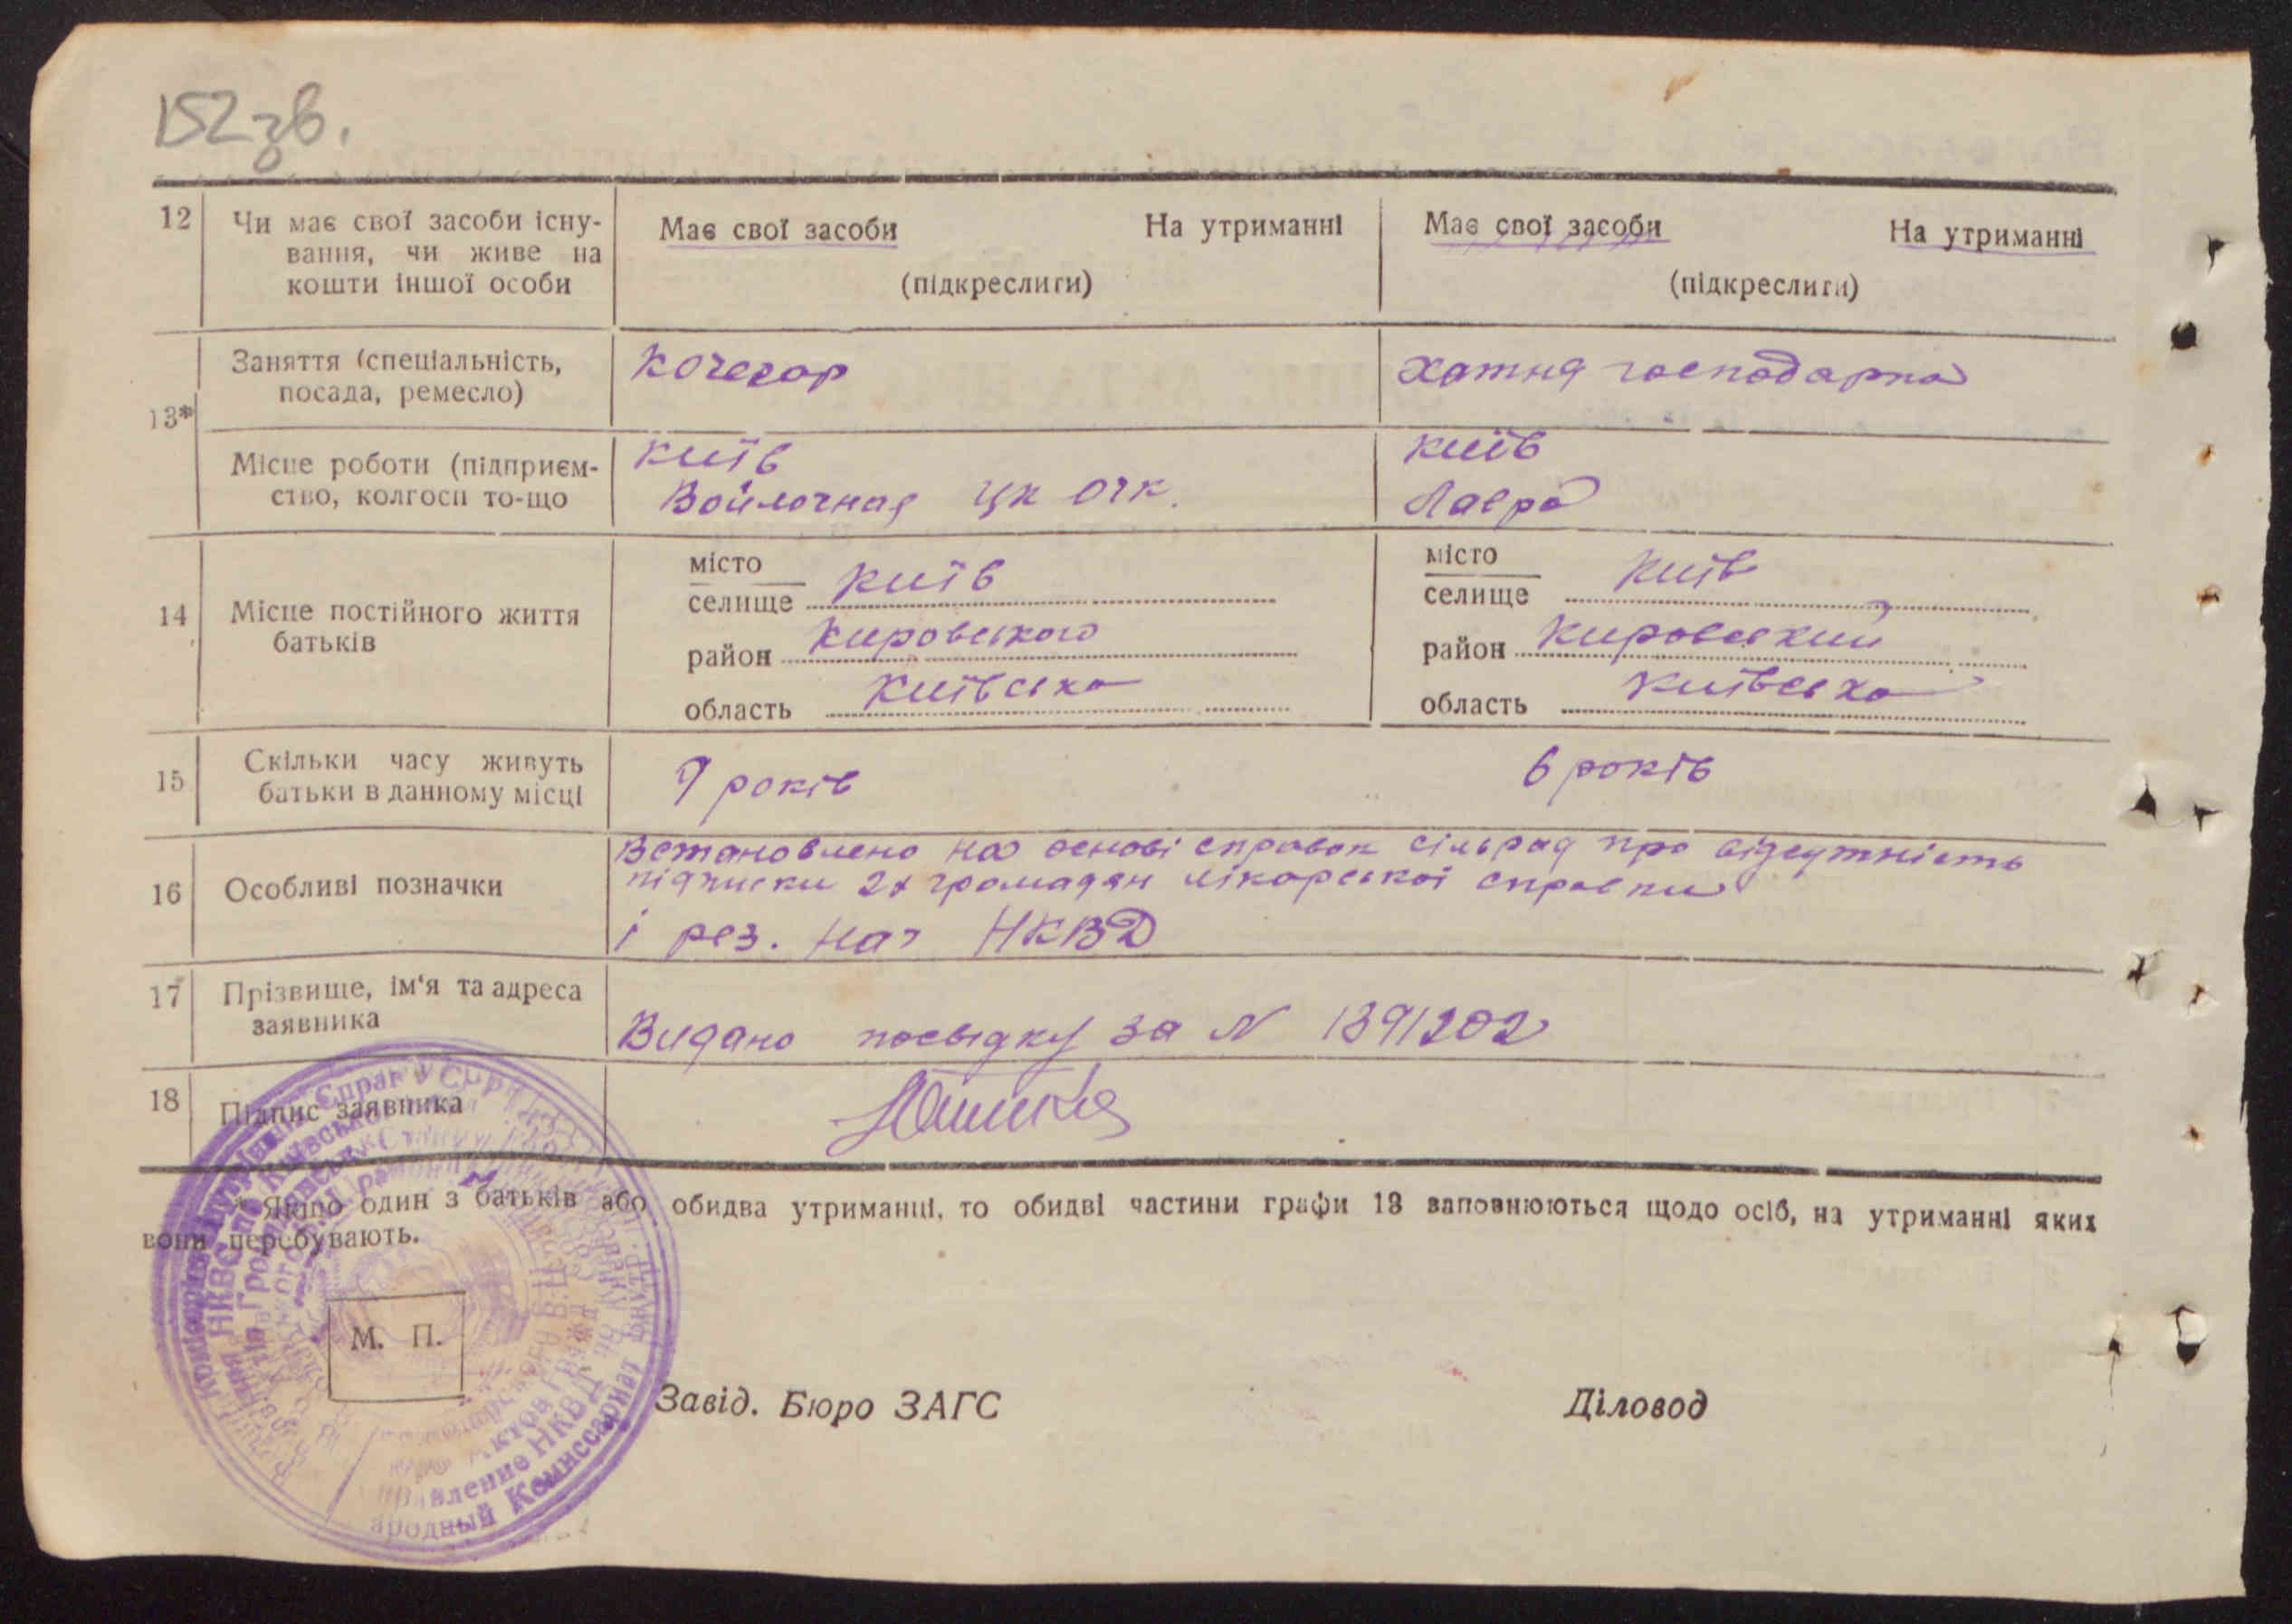 152зв.
12 Чи має свої засоби існу-
вання, чи живе на
кошти іншої особи
Має свої засоби На утриманні
(підкреслити)
Має свої засоби На утриманні
(підкреслити)
13*
Заняття (спеціальність,
посада, ремесло)
Кочегар
хатня господарка
Місце роботи (підприєм-
ство, колгосп то-що
Київ
Войлочная
Київ
Лавра
14 Місце постійного життя
батьків
місто
селище Київ
район Кировського
область Київська
місто
селище Київ
район Кировский
область Київська
15 Скільки часу живуть
батьки в данному місці
9 років
6 років
16 Особливі позначки
Встановлено на основі справок сільрад про відсутність
підписки 2х громадян лікарської справки
і рез. нач НКВД
17 Прізвище, ім'я та адреса
заявника
Видано посвідку за N 1391202
18 Підпис заявника
* Якщо один з батьків або обидва утриманці, то обидві частини графи 13 заповнюються щодо осіб, на утриманні яких
вони перебувають.
М. П.
Завід. Бюро ЗАГС
Діловод